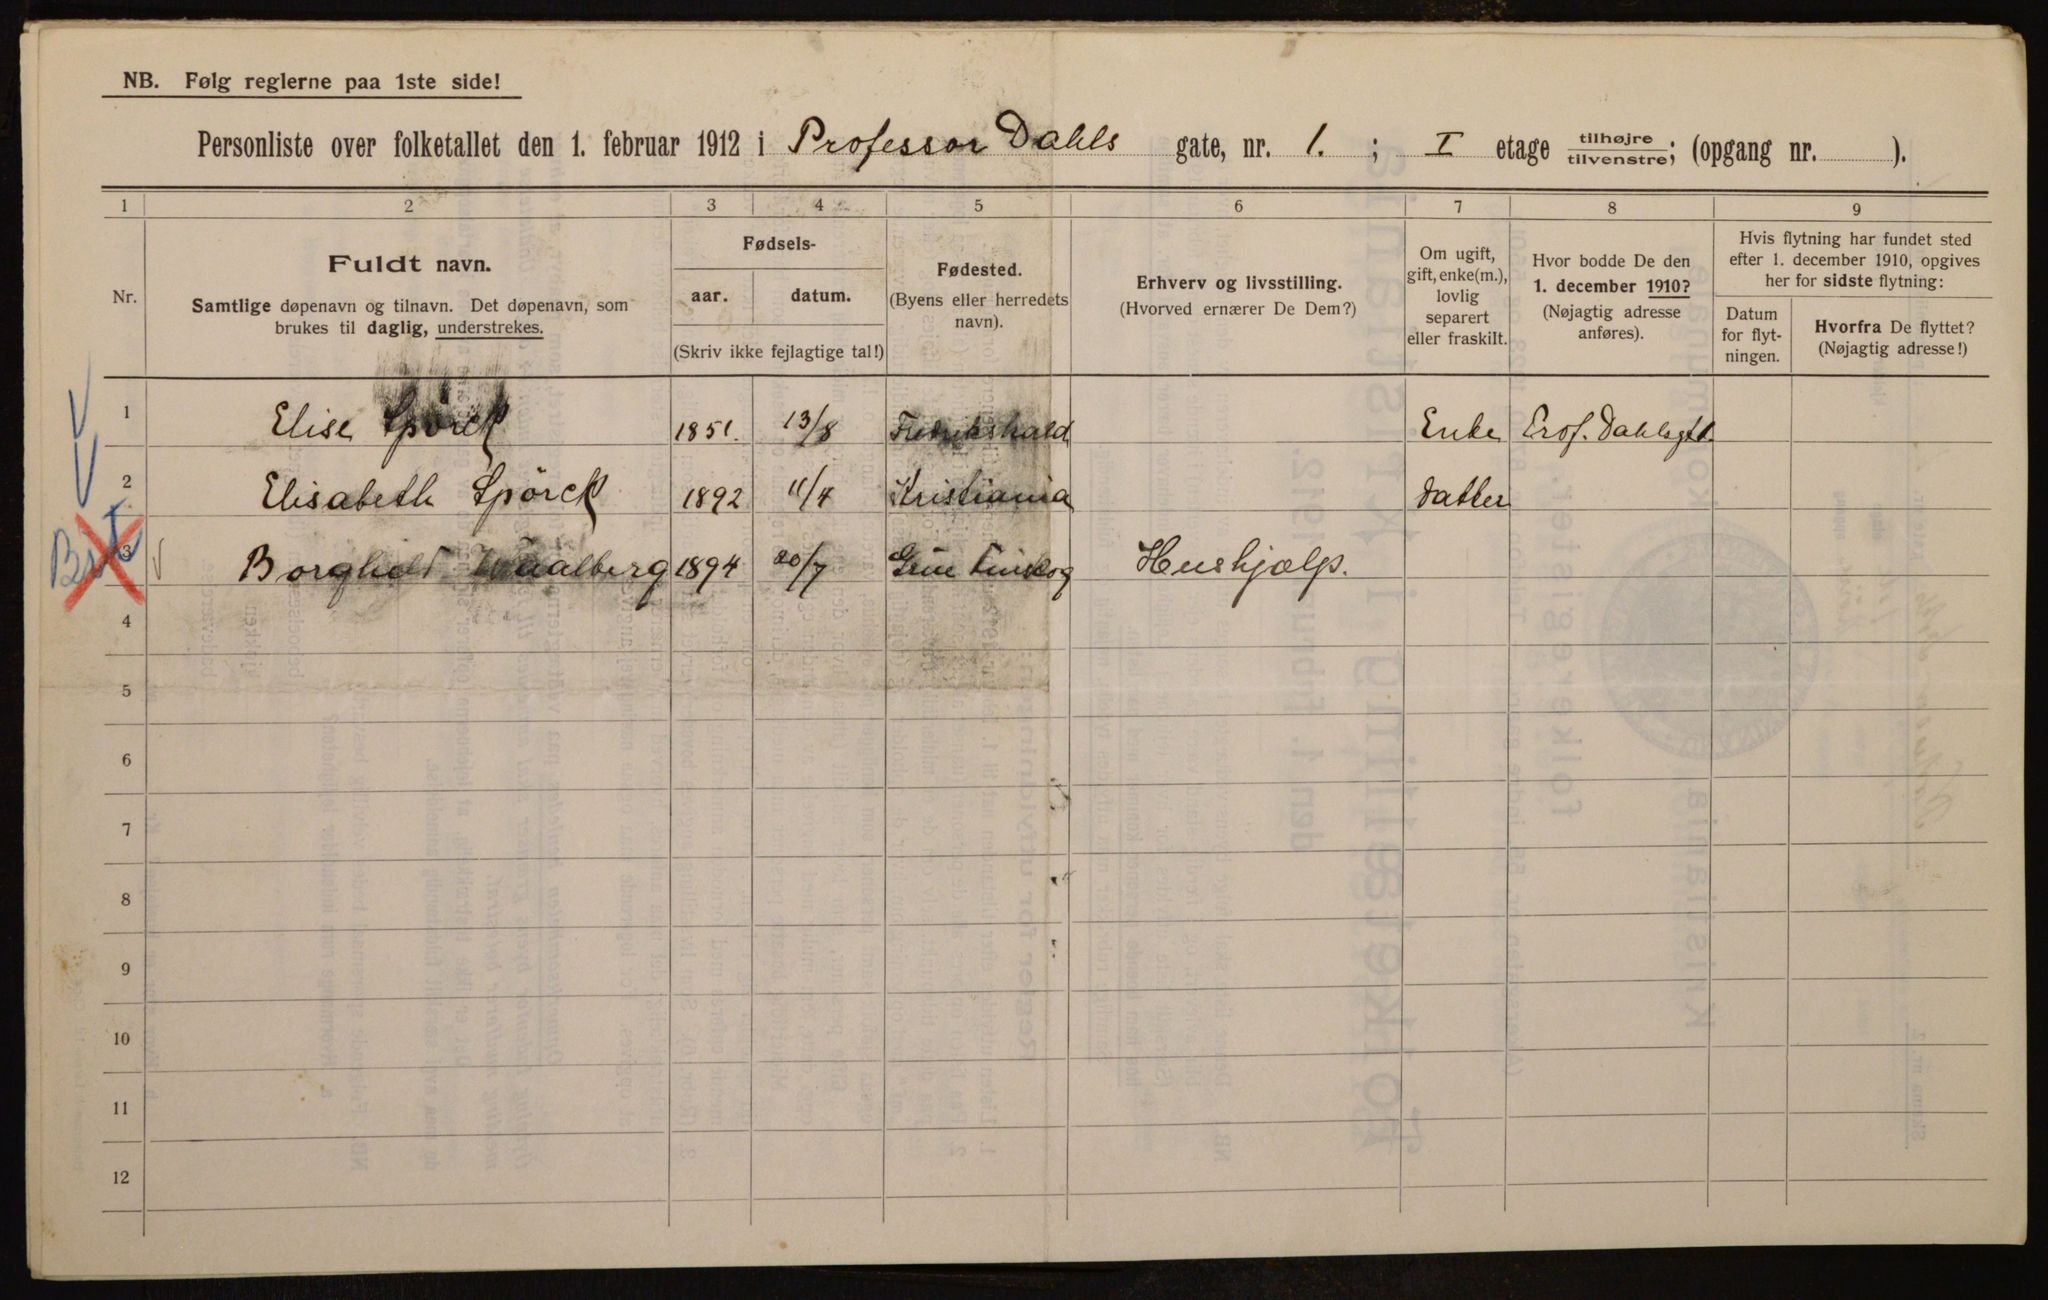 NB. Følg reglerne paa 1ste side!
Personliste over folketallet den 1. februar 1912 i Professor Dahls gate, nr. 1. ; I etage tilhøjre tilvenstre; (opgang nr. ).
1 2 3 4 5 6 7 8 9
Nr.
Fuldt navn.
Samtlige døpenavn og tilnavn. Det døpenavn, som
brukes til daglig, understrekes.
Fødsels-
aar. datum.
(Skriv ikke fejlagtige tal!)
Fødested.
(Byens eller herredets
navn).
Erhverv og livsstilling.
(Hvorved ernærer De Dem?)
Om ugift,
gift, enke(m.),
lovlig
separert
eller fraskilt.
Hvor bodde De den
1. december 1910?
(Nøjagtig adresse
anføres).
Hvis flytning har fundet sted
efter 1. december 1910, opgives
her for sidste flytning:
Datum
for flyt-
ningen.
Hvorfra De flyttet?
(Nøjagtig adresse!)
1 Elise Spörck 1851. 13/8 Fredrikshald Enke Prof. Dahlsgt 1.
2 Elisabeth Spörck 1892 11/4 Kristiania datter
3 Borghild Waalberg 1894 20/7 Grue Finskog Hushjælp.
4
5
6
7
8
9
10
11
12